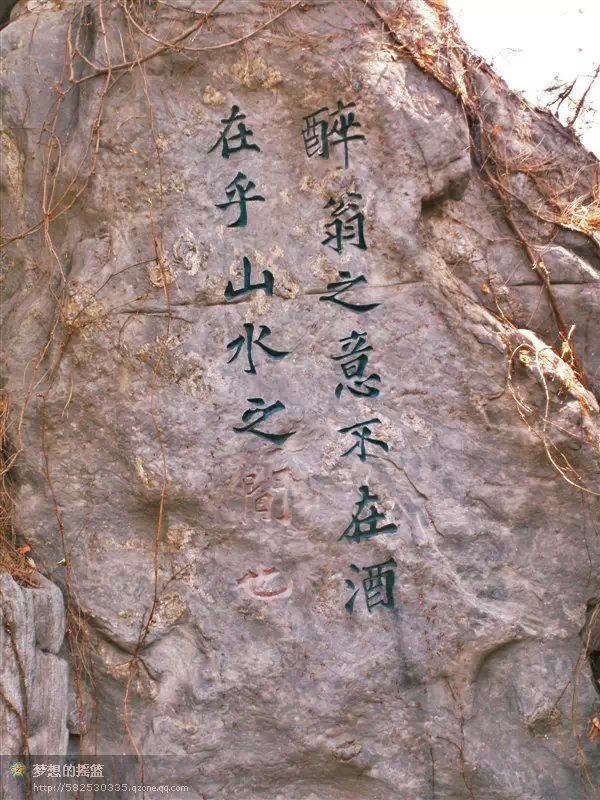 醉翁之意不在酒
在乎山水之間也
梦想的摇篮
http://582530335.qzone.qq.com